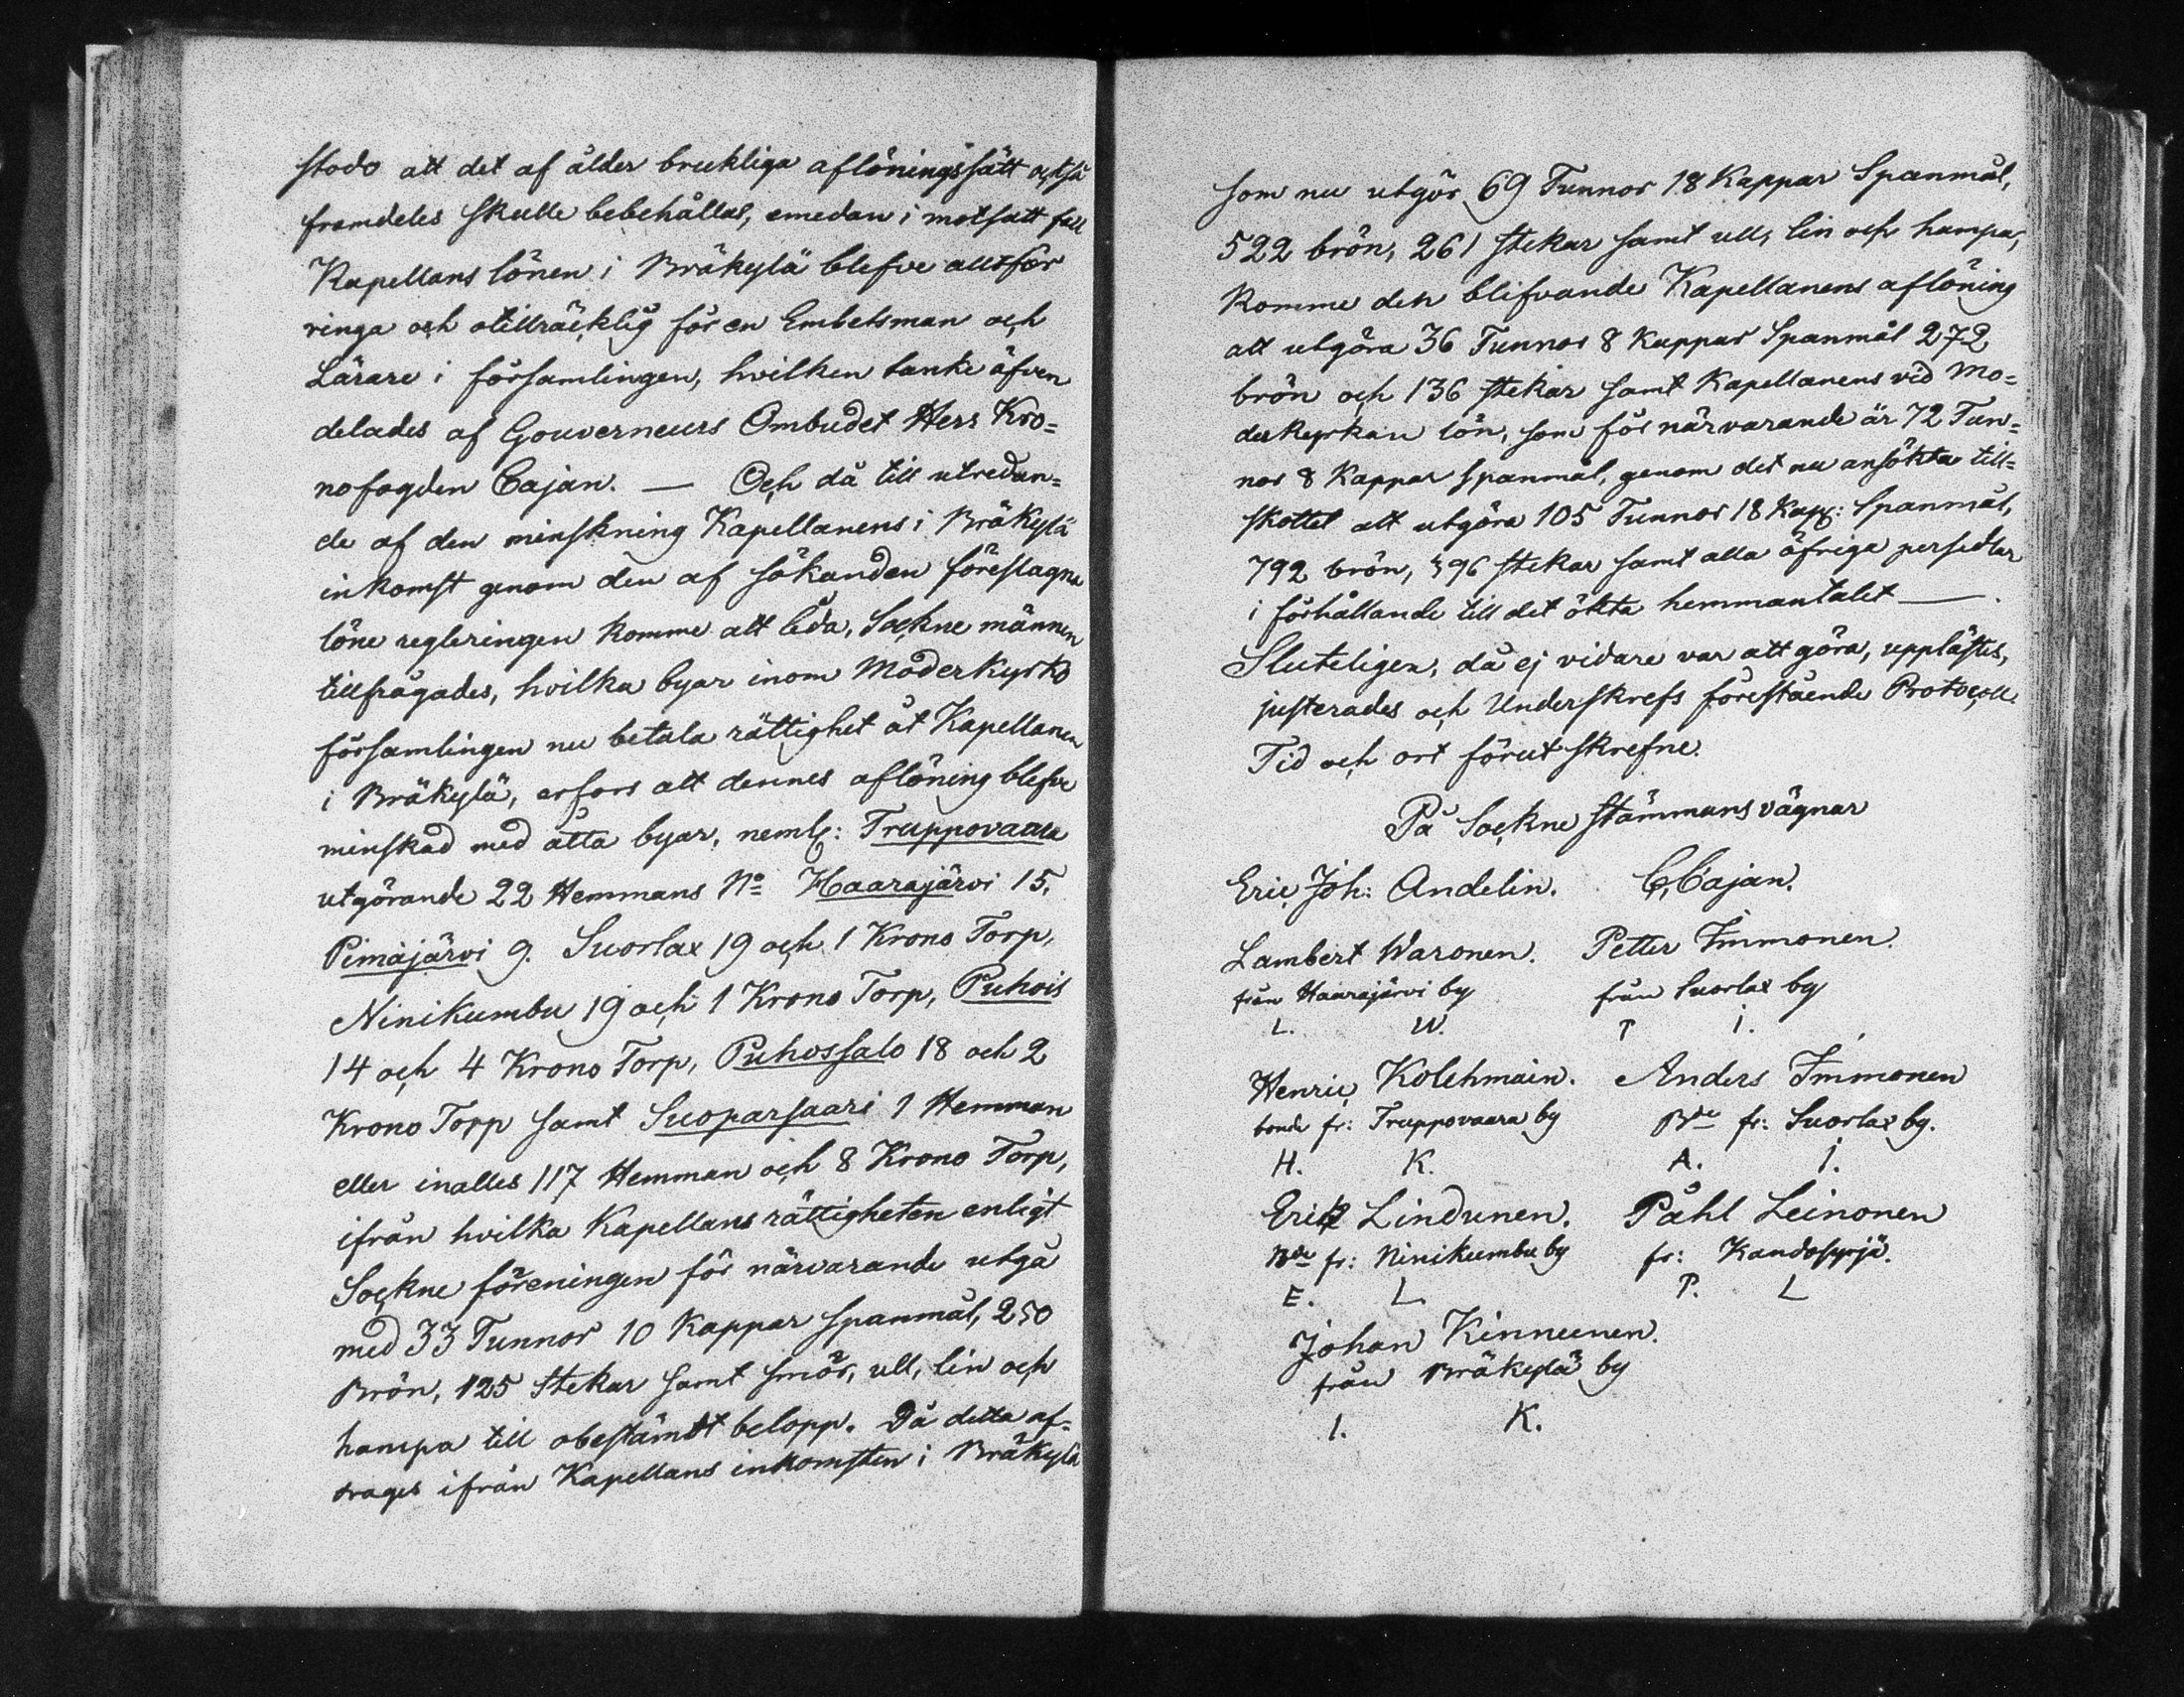 stodo att det af ålder brukliga aflöningssätt också
framdeles skulle bebehållas, emedan i motsatt fall
Kapellans lönen i Bräkylä blefve alltför
ringa och otillräcklig för en Embetsman och
Lärare i församlingen, hvilken tanke äfven
delades af Gouverneurs Ombudet Herr Kro=
nofogden Cajan. — Och då till utredan=
de af den minskning Kapellanens i Bräkylä
inkomst genom den af sökanden föreslagna
löne regleringen komme att lida, Sockne männen
tillfrågades, hvilka byar inom Moderkyrko
församlingen nu betala rättighet åt Kapellanen
i Bräkylä, erfors att dennes aflöning blefve
minskad med åtta byar, neml: Truppovaara
utgörande 22 Hemmans No Haarajärvi 15,
Pimäjärvi 9. Suorlax 19 och 1 Krono Torp,
Ninikumbu 19 och 1 Krono Torp, Puhois
14 och 4 Krono Torp, Puhossalo 18 och 2
Krono Torp samt Suoparsaari 1 Hemman
eller inalles 117 Hemman och 8 Krono Torp,
ifrån hvilka Kapellans rättigheten enligt
Sockne föreningen för närvarande utgå
med 33 Tunnor 10 Kappar spanmål, 250
Brön, 125 Stekar samt smör, ull, lin och
hampa till obestämdt belopp. Då detta af=
drages ifrån Kapellans inkomsten i Bräkylä
som nu utgör 69 Tunnor 18 Kappar Spanmål,
522 brön, 261 stekar samt ull, lin och hampa,
komme den blifvande Kapellanens aflöning
att utgöra 36 Tunnor 8 Kappar Spanmål 272
brön och 136 stekar samt Kapellanens vid Mo=
derkyrkan lön, som för närvarande är 72 Tun=
nor 8 Kappar spanmål, genom det nu ansökta till=
skottet att utgöra 105 Tunnor 18 Kapp: Spanmål,
792 brön, 396 stekar samt alla öfriga persedlar
i förhållande till det ökta hemmantalet —.
Sluteligen, då ej vidare var att göra, upplästes,
justerades och Underskrefs förestående Protocoll.
Tid och ort förut skrefne.
På Sockne stämmans vägnar
Eric Joh: Andelin. C. Cajan.
Lambert Waronen. Petter Immonen.
från Haarajärvi by från Suorlax by
L. W. P I.
Henric Kolehmain. Anders Immonen
bonde fr: Truppovaara by Bde fr: Suorlax by.
H. K. A. I.
Erik Lindunen. Påhl Leinonen
Bde fr: Ninikumbu by fr: Kandosyrjä.
E. L P. L
Johan Kinnunen.
från Bräkylä by
I. K.